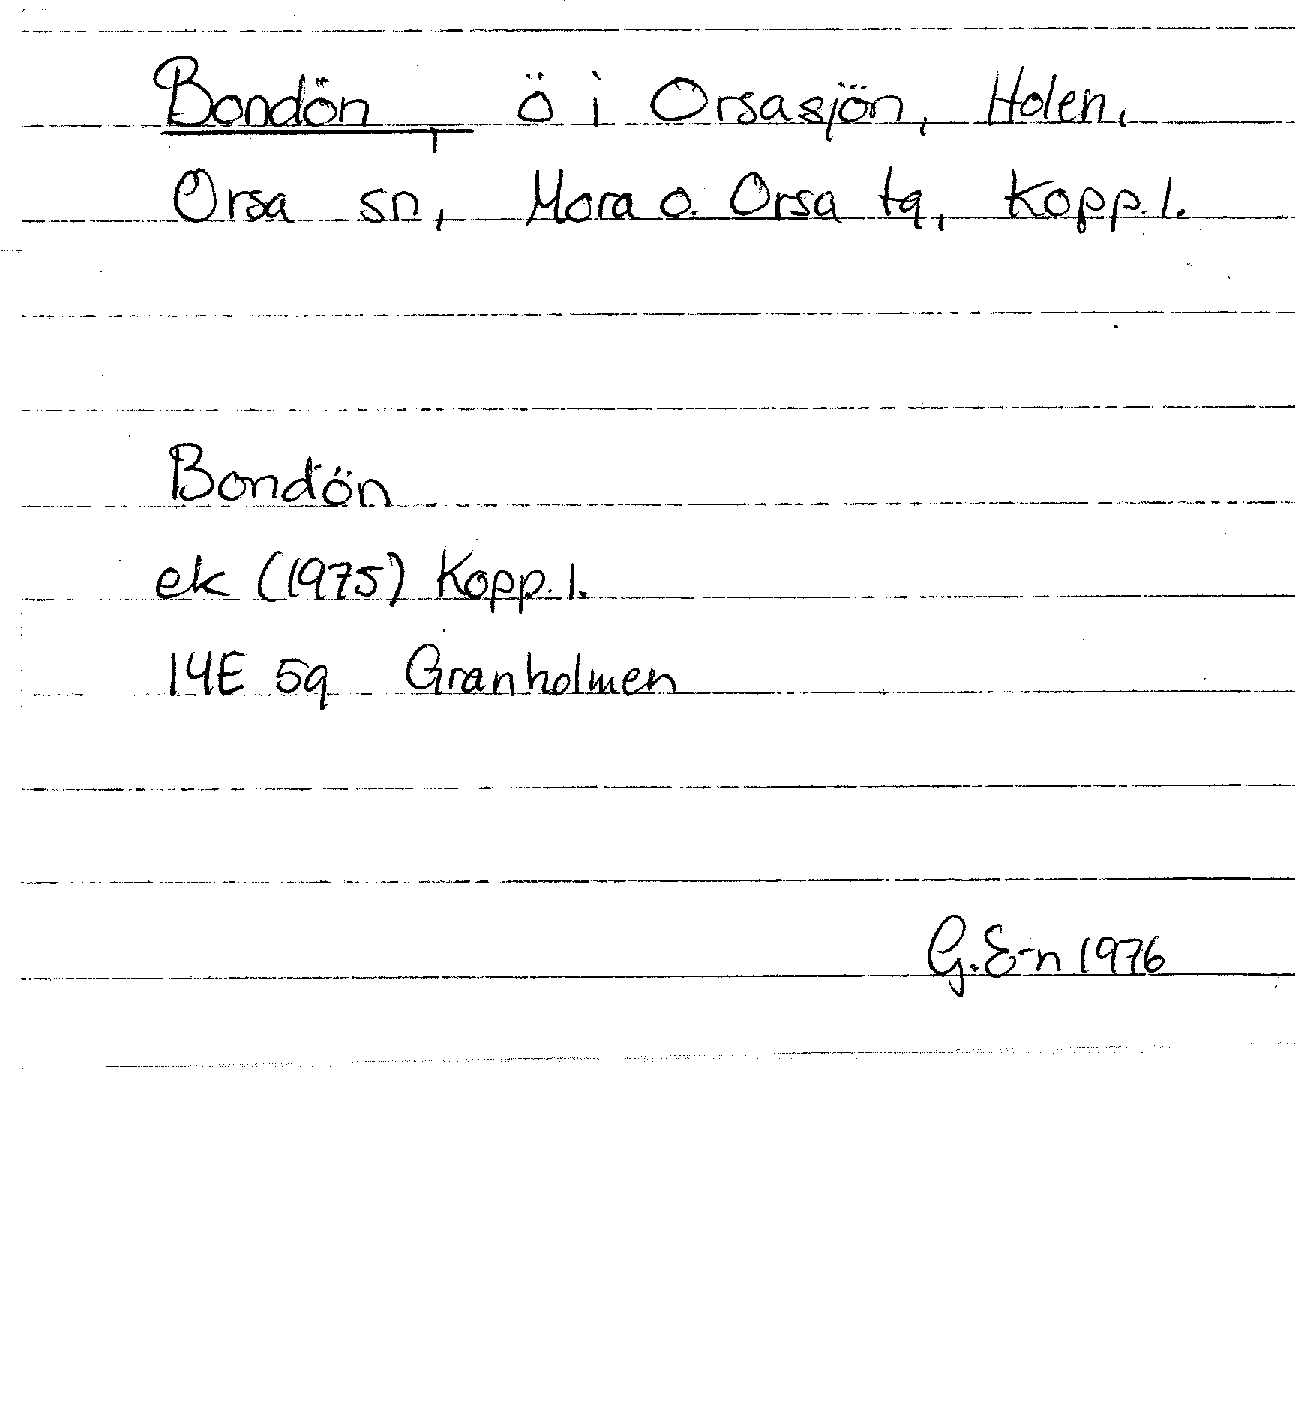 Bondön, ö i Orsasjön, Holen,
Orsa sn, Mora o. Orsa tg, Kopp. l.
Bondön
ek (1975) Kopp. l.
14E 5g Granholmen
G. E-n 1976